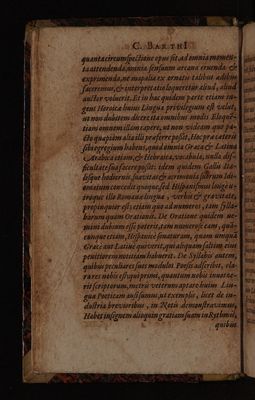 C. BARTHI
quanta circumspectione opus sit ad omnia momen-
ta attendenda, omnia sensuum arcana eruenda &
exprimenda, ne mapalia ex ornatis talibus ædibus
faceremus, & interpretatio loqueretur aliud, aliud
auctor voluerit. Et in hac quidem parte etiam in-
gens Heroicæ huius Linguæ privilegium est
ut non dubitem dicere ita omnibus modis Eloquen-
tiam omnem illam capere, ut non videam quo pa-
cto quapiam alia illi præferri possit. Hoc præcæteris
sibi egregium habens, quod omnia Græca & Latina
& Arabica etiam, & Hebraica, vocabula, nulla dif-
ficultate sua facere possit: idem quidem Gallis Ita-
lisque hodiernis, suavitate & acrimonia suorum Idi-
omatum concedit quoque, sed Hispanismus longe u-
troque illa Romanæ linguæ, verbis & gravitate,
propinquior est; etiam quo ad numeros, tam sylla-
barum quam Orationis. De Oratione quidem ne-
mini dubium esse poterit, tam numerose eam, qui-
cunque etiam, Hispanice sonaturam, quam unquam
Græce aut Latine quiverit, qui aliquam saltim eius
penitiorem notitiam habuerit. De Syllabis autem,
quibus peculiares suos modulos Poesis adscribit, cla-
rares nobis est; qui primi, quantum nobis innotue-
rit scriptorum, metris veterum aptare huius Lin-
guæ Poeticam ausi sumus, ut exemplis, licet de in-
dustria brevioribus, in Notis demonstravimus,
Habet insignem alioquin gratiam suam in Rythmis,
quibus